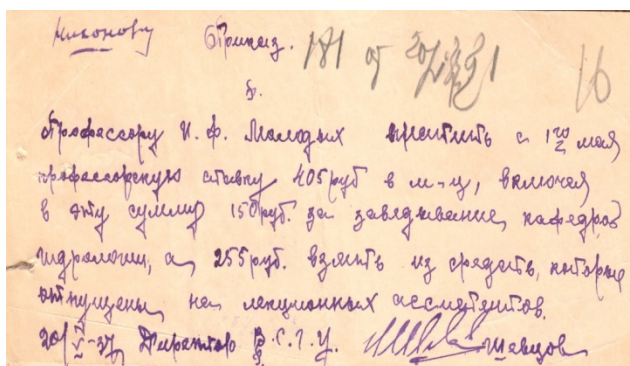 Никонову Приказ. 181 от 16
§.
Профессору И. Ф. Молодых платить с 1го мая
профессорскую ставку 405 руб в м-ц, включая
в эту сумму 150 руб. за заведывание кафедрой
гидрологии, а 255 руб. взять из средств, которые
отпущены на лекционных ассистентов.
20/VI-37 Директор В.С.Г.У. Шевцов